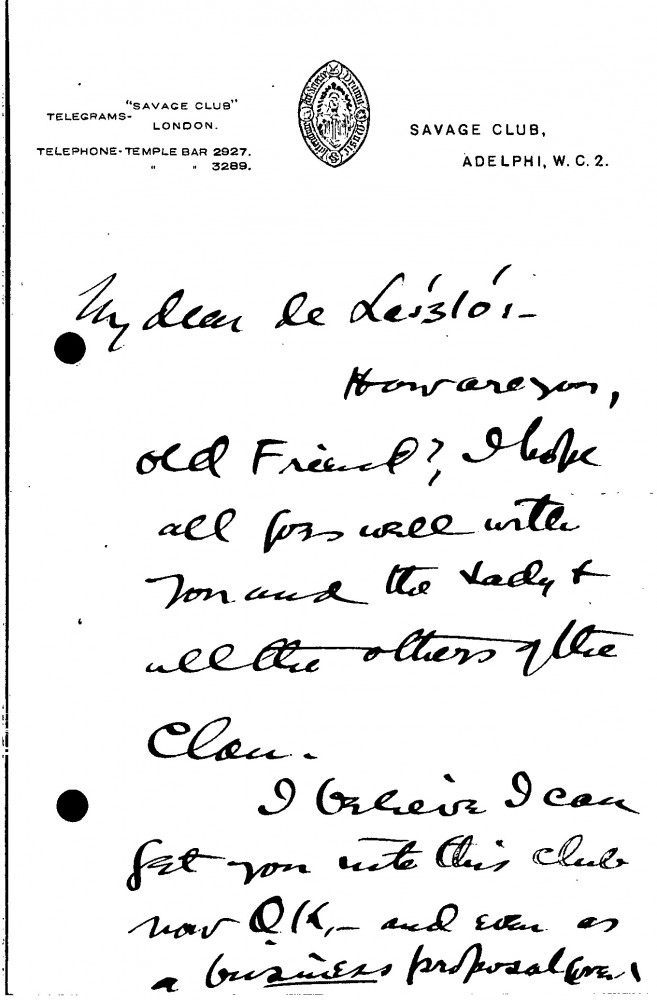 "SAVAGE CLUB"
TELEGRAMS-
LONDON.
TELEPHONE-TEMPLE BAR 2927.
" " 3289.
SAVAGE CLUB,
ADELPHI, W.C.2.
My dear de László:-
How are you,
old Friend?, I hope
all goes well with
you and the Lady &
all the others of the
Clan.
I believe I can
get you into this club
now OK, - and even as
a business proposal